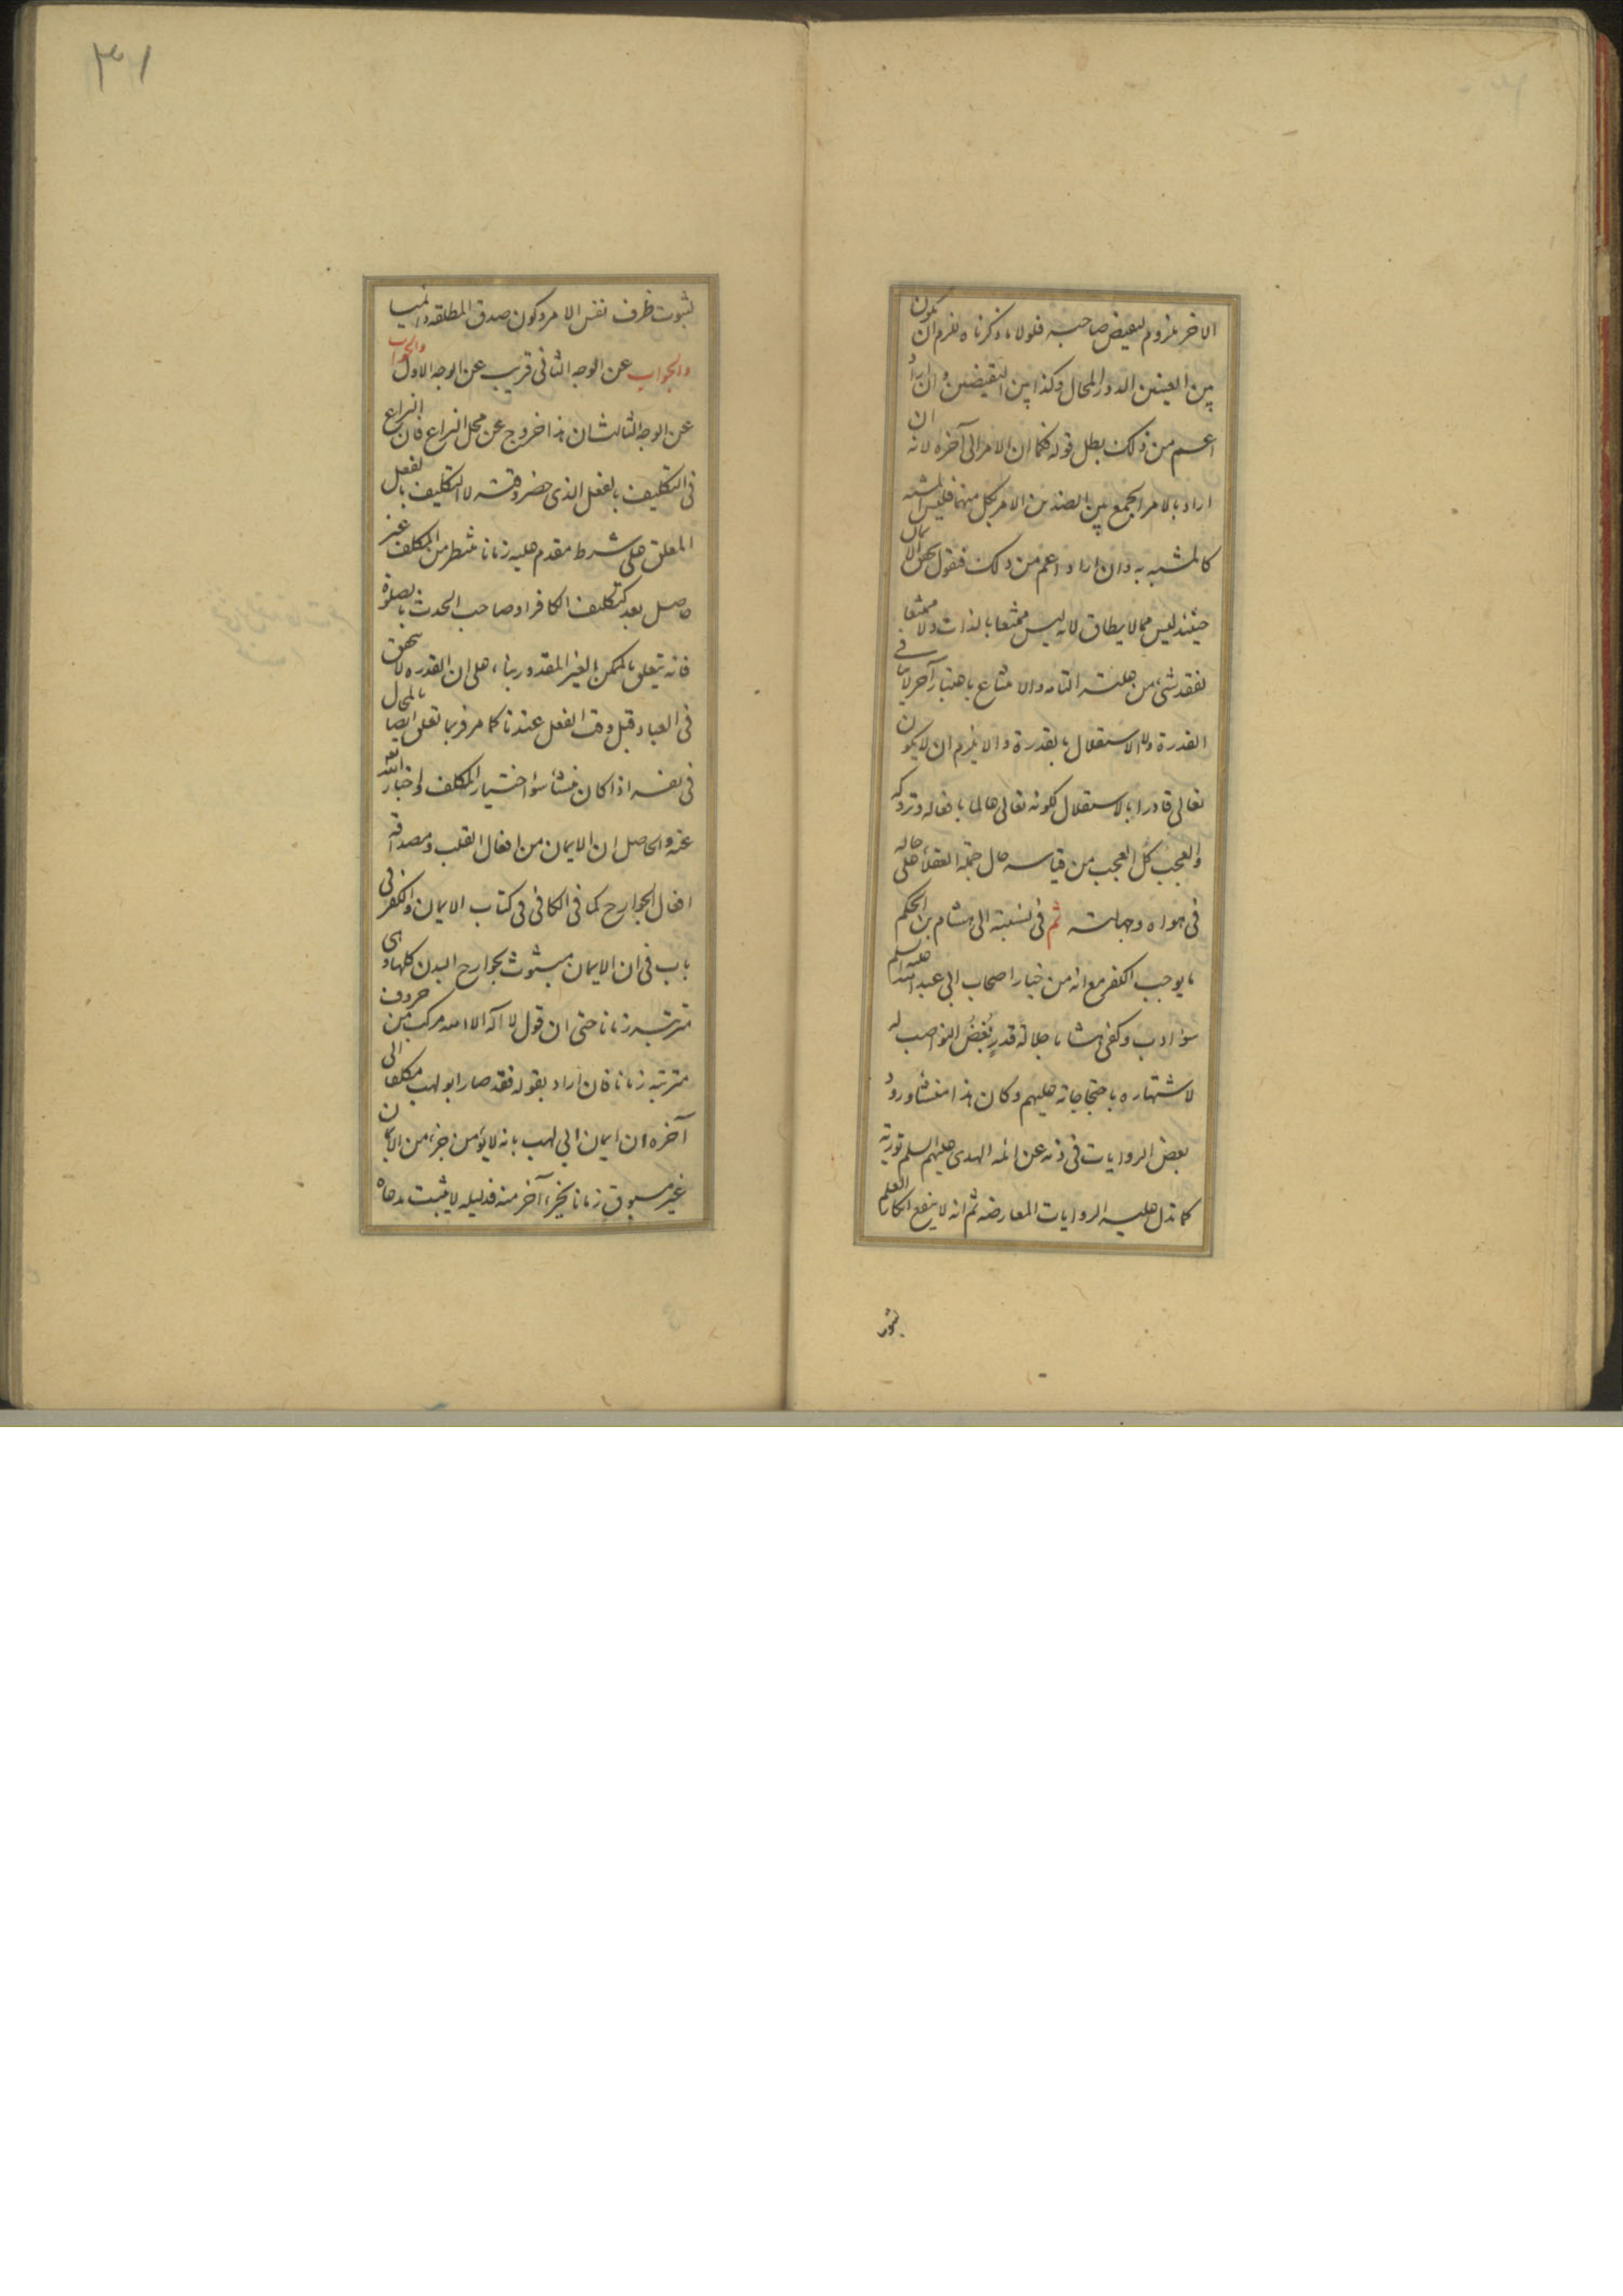 الاخر ملزوم لنقيض صاحبه فلولا ما ذكرناه لزم ان يكون
بين العينين الدور المحال وكذا بين النقيضين وان اراد
اعم من ذلك بطل قوله فكما ان الامر الى آخره لانه ان
اراد بالامر الجمع بين الضدين الامر بكل منهما فليس المشبه
كالمشبه به وان اراد اعم من ذلك فنقول
حينئذ ليس مما لا يطاق لانه ليس ممتنعا بالذات ولا ممتنعا
لفقد شيء من علته التامه والامتناع باعتبار آخر لا ينافي
القدرة ولا الاستقلال بالقدرة والا يلزم ان لا يكون
تعالى قادرا بالاستقلال لكونه تعالى عالما بافعاله وتروكه
والعجب كل العجب من قياسه حال العقلاء على حاله
في هواه وجهالته ثم في نسبته الى هشام بن الحكم
ما يوجب الكفر مع انه من خيار اصحاب ابي عبد الله عليه السلم
سوء ادب وكفى هشاما جلالة قدر بغض النواصب له
لاشتهاره باحتجاجاته عليهم وكان هذا منشأ ورود
بعض الروايات في ذمه عن ائمة الهدى عليهم السلم تورية
كما تدل عليه الروايات المعارضه ثم انه لا ينفع انكار العلم
بثبوت
بثبوت ظرف نفس الامر وكون صدق المطلقه
والجواب عن الوجه الثاني قريب عن الوجه الاول والجواب
عن الوجه الثالث ان هذا خروج عن محل النزاع فان النزاع
في التكليف بالفعل الذي حضر وقته لا التكليف بالفعل
المعلق على شرط مقدم عليه زمانا منتظر من المكلف غير
حاصل بعد كتكليف الكافر او صاحب الحدث بالصلوة
فانه يتعلق بالممكن الغير المقدور بناء على ان القدره لا تتحقق
في العباد قبل وقت الفعل عندنا كما مر وربما تعلق ايضا بالمحال
في نفسه اذا كان منشأه سوء اختيار المكلف واخبار الله
عنه والحاصل ان الايمان من افعال القلب ومصداقه
افعال الجوارح كما في الكافي في كتاب الايمان والكفر في
باب في ان الايمان مبثوث بجوارح البدن كلها وهي
مترتبه زمانا حتى ان قول لا اله الا الله مركب من حروف
مترتبة زمانا فان اراد بقوله فقد صار ابو لهب مكلفا الى
آخره ان ايمان ابي لهب بانه لا يؤمن جزء من الايمان
غير مسبوق زمانا بجزء آخر منه فدليله لا يثبت مدعاه
٣١